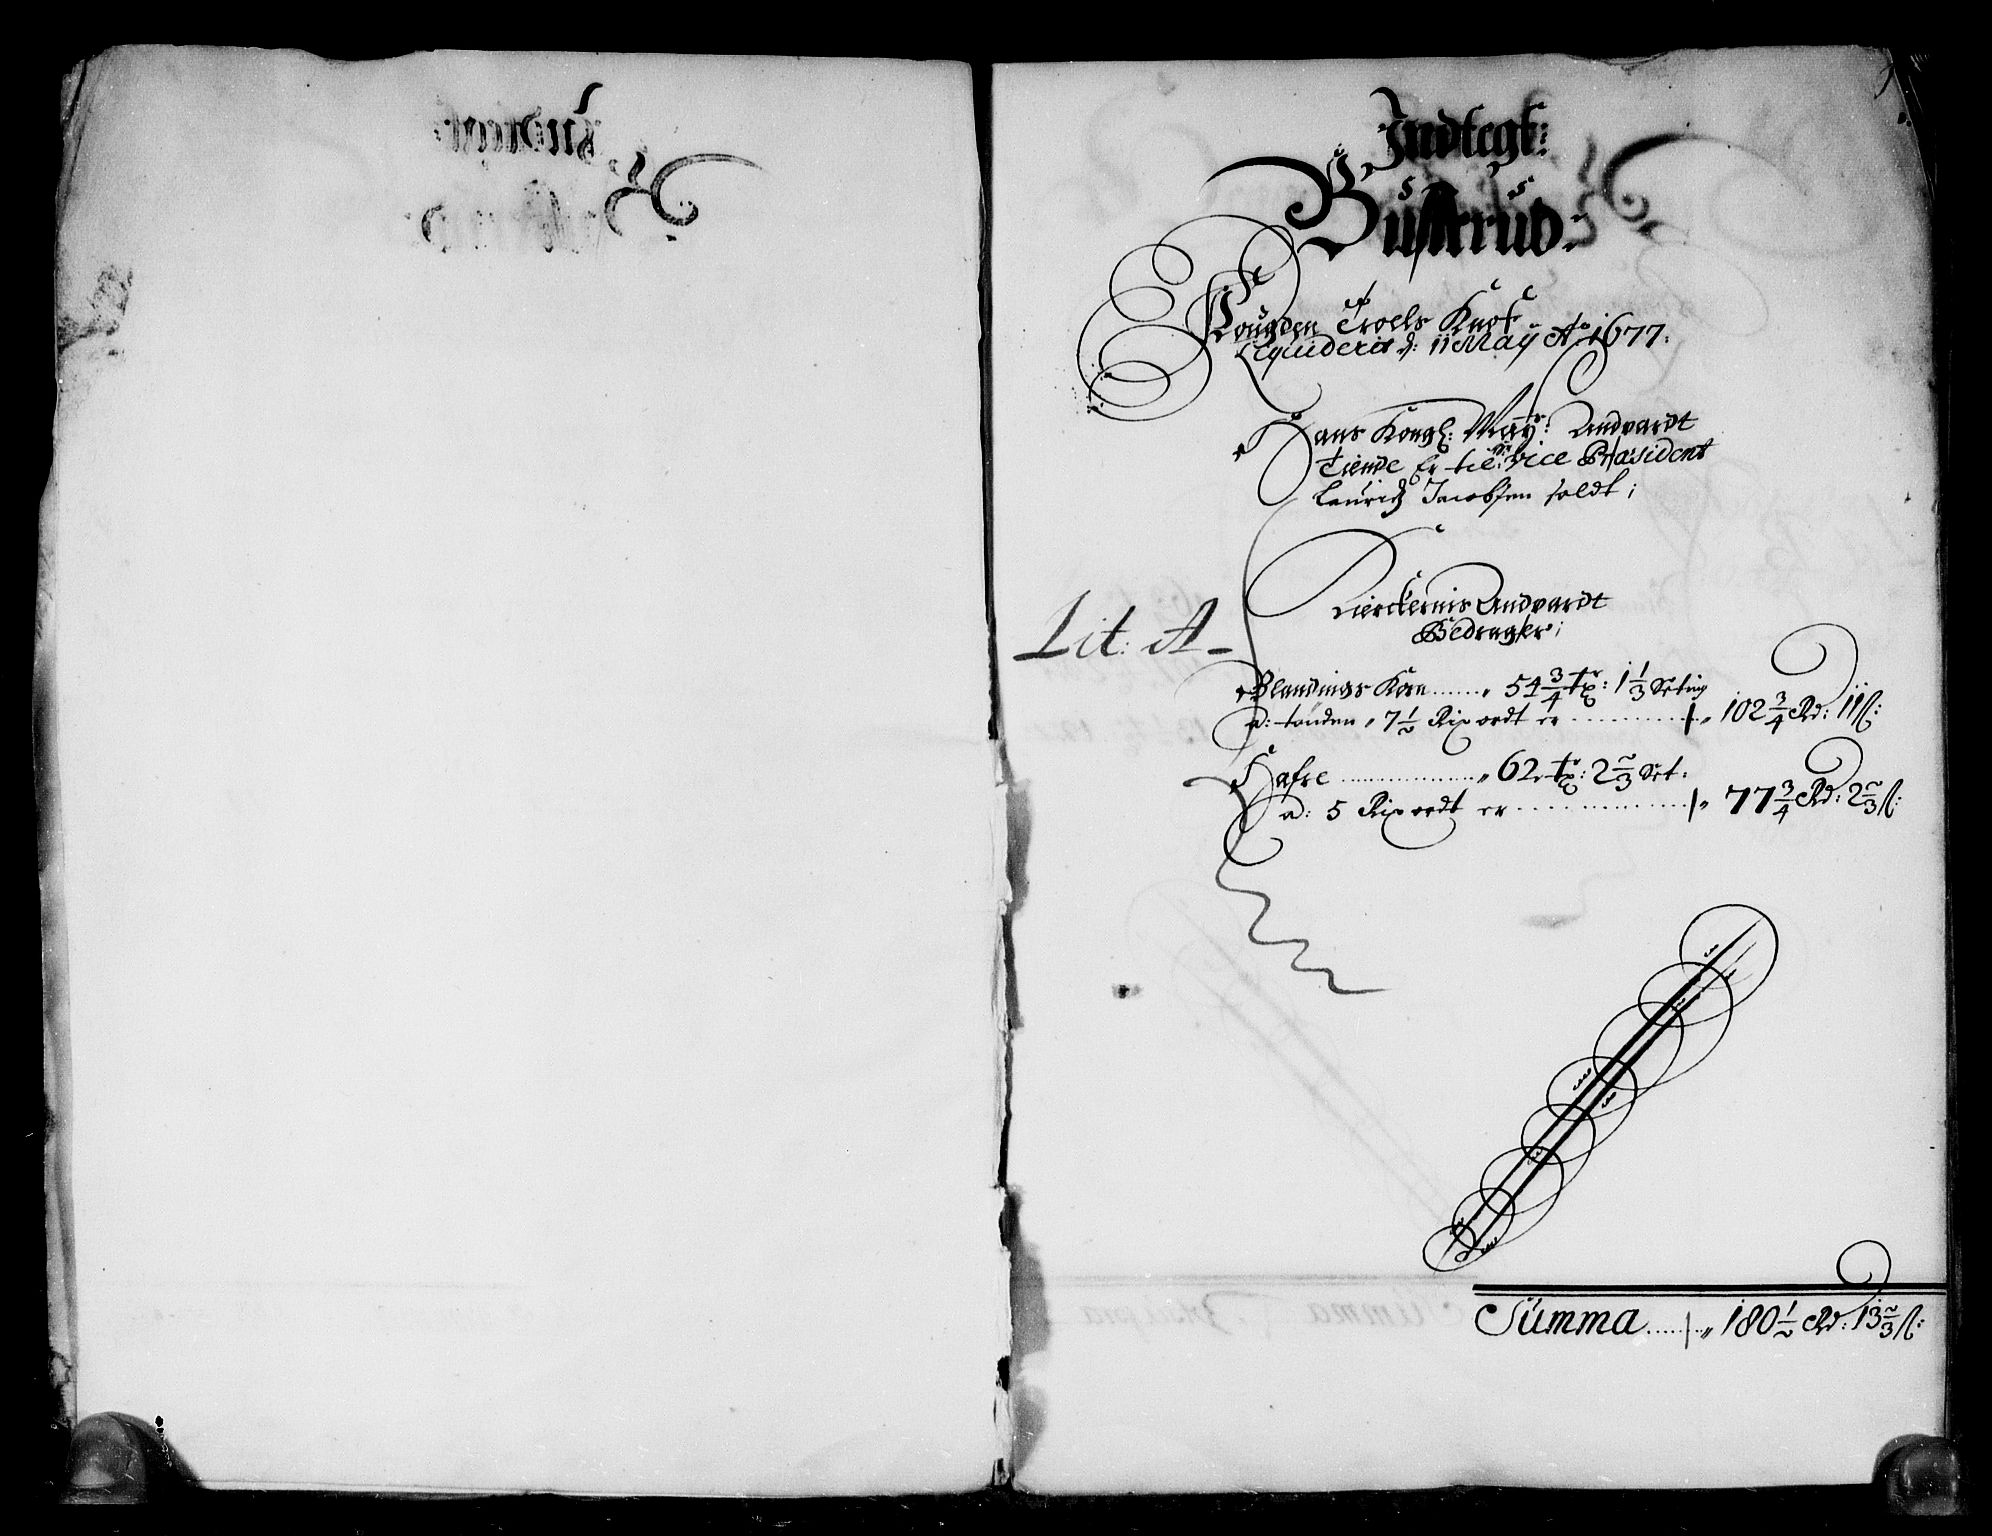 Indtegt:
Buskrud:
Fougden Troels Knof
Liquiderit d: 11 May Ao 1677.
Hans Kongl: May:ts Andpardt
Tiende Er til: Hr: Vice Præsident
Laurids Jacobsen soldt;
Lit: A -
Kierckernis Andpardt
Bedrager;
Blandings Korn ...... „ 54 3/4 tr: 1 1/3 Setting
a: tønden „ 7 1/2 Rix ordt er ............ „ 102 3/4 Rd: 11 ß:
Hafre .................. „ 62 tr: 2 2/3 Set:
a: 5 Rix ordt er ................ „ 77 3/4 Rd: 2 2/3 ß:
Summa ...... „ 180 1/2 Rd: 13 2/3 ß: